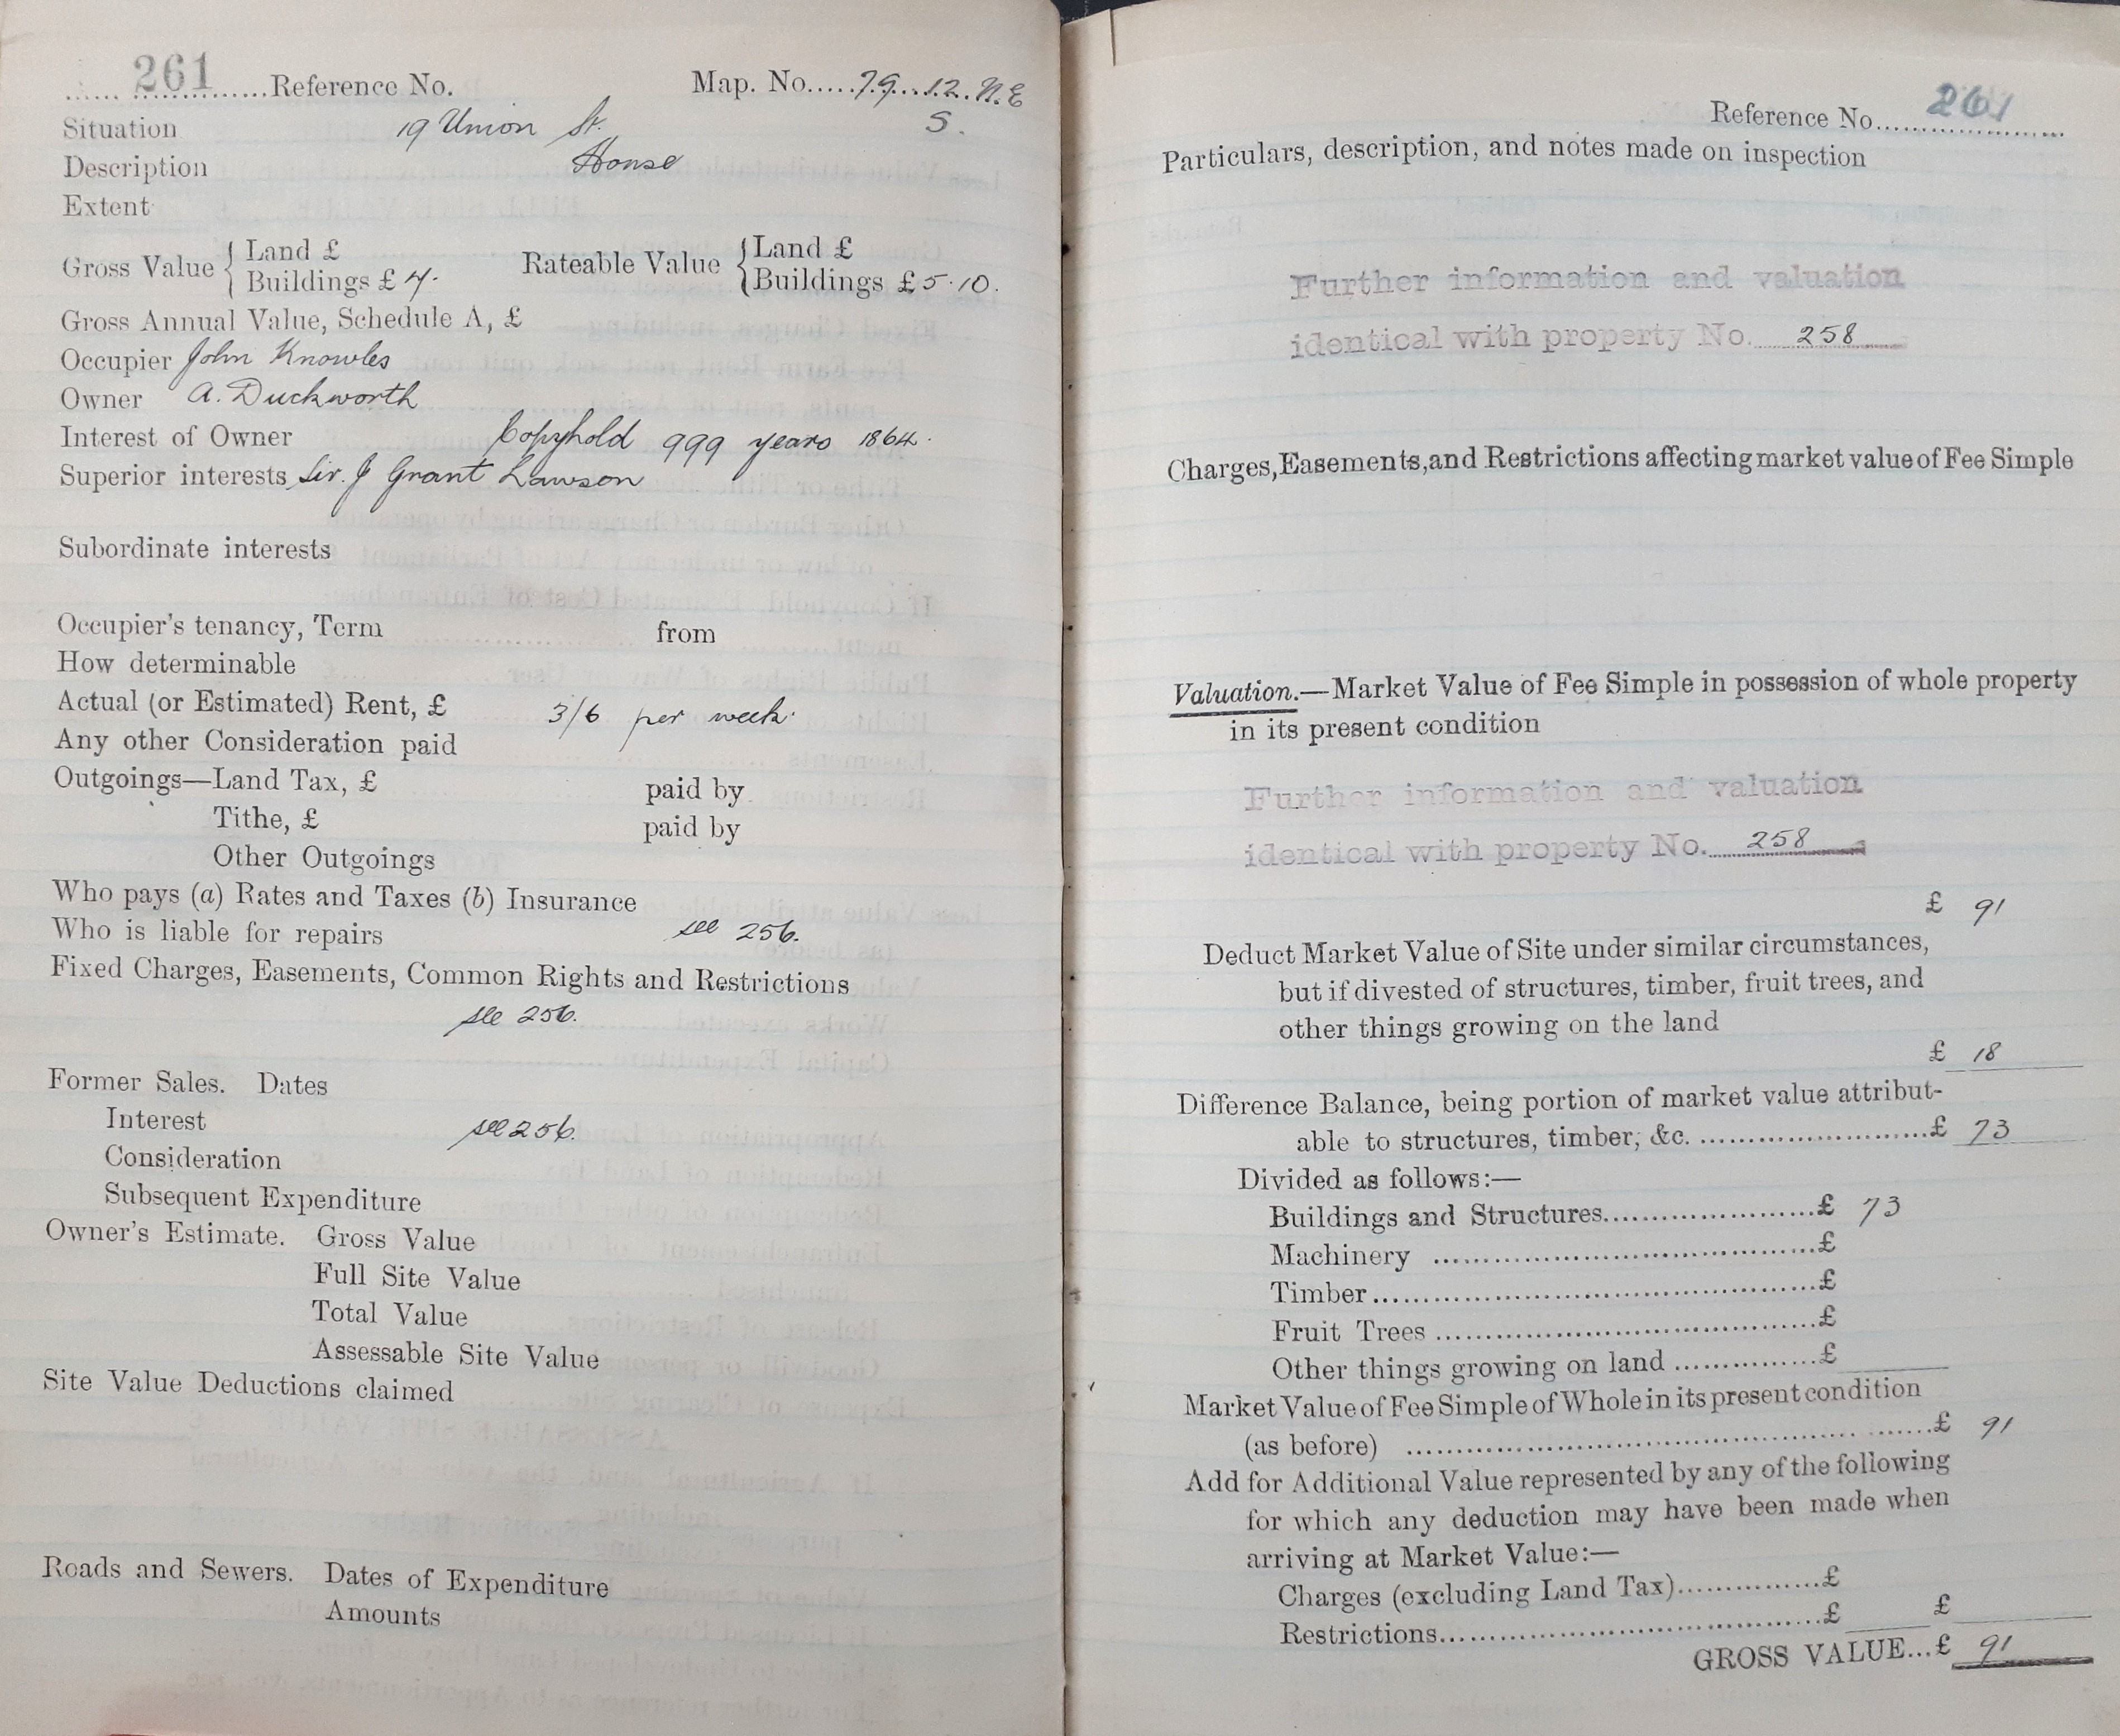 261 Reference No. Map. No. 79.12.N.E
S.
Situation 19 Union St.
Description House
Extent
Gross Value { Land £
Buildings £ 7. Rateable Value { Land £
Buildings £ 5.10.
Gross Annual Value, Schedule A, £
Occupier John Knowles
Owner A. Duckworth
Interest of Owner Copyhold 999 years 1864.
Superior interests Sir. J Grant Lawson
Subordinate interests
Occupier's tenancy, Term from
How determinable
Actual (or Estimated) Rent, £ 3/6 per week.
Any other Consideration paid
Outgoings—Land Tax, £ paid by
Tithe, £ paid by
Other Outgoings
Who pays (a) Rates and Taxes (b) Insurance
Who is liable for repairs see 256.
Fixed Charges, Easements, Common Rights and Restrictions
see 256.
Former Sales. Dates
Interest see 256.
Consideration
Subsequent Expenditure
Owner's Estimate. Gross Value
Full Site Value
Total Value
Assessable Site Value
Site Value Deductions claimed
Roads and Sewers. Dates of Expenditure
Amounts
Reference No. 261
Particulars, description, and notes made on inspection
Further information and valuation
identical with property No. 258
Charges, Easements, and Restrictions affecting market value of Fee Simple
Valuation.—Market Value of Fee Simple in possession of whole property
in its present condition
Further information and valuation
identical with property No. 258
£ 91
Deduct Market Value of Site under similar circumstances,
but if divested of structures, timber, fruit trees, and
other things growing on the land
£ 18
Difference Balance, being portion of market value attribut-
able to structures, timber, &c. £ 73
Divided as follows:—
Buildings and Structures £ 73
Machinery £
Timber £
Fruit Trees £
Other things growing on land £
Market Value of Fee Simple of Whole in its present condition
(as before) £ 91
Add for Additional Value represented by any of the following
for which any deduction may have been made when
arriving at Market Value:—
Charges (excluding Land Tax) £
Restrictions £ £
GROSS VALUE...£ 91